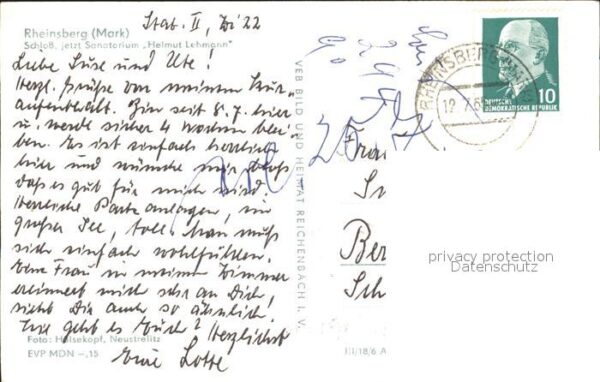 Stat. II, Zi 22
Rheinsberg (Mark)
Schloß, jetzt Sanatorium „Helmut Lehmann"
Liebe Suse und Ute!
Herzl. Grüße von meinem Kur-
aufenthalt. Bin seit 8.7. hier
u. werde sicher 4 Wochen blei-
ben. Es ist einfach herrlich
hier und wünsche mir bloß
daß es gut für mich wird.
Herrliche Parkanlagen, ein
großer See, toll. Man muß
sich einfach wohlfühlen.
Eine Frau in meinem Zimmer
erinnert mich sehr an Dich,
sieht Dir auch so ähnlich.
Wie geht es Euch? Herzlichst
Eure Lotte
Foto: Halsekopf, Neustrelitz
EVP MDN -,15
VEB BILD UND HEIMAT REICHENBACH I. V.
III/18/6 A
RHEINSBERG
12.7.6
10
DEUTSCHE
DEMOKRATISCHE REPUBLIK
Ber
Sch
privacy protection
Datenschutz